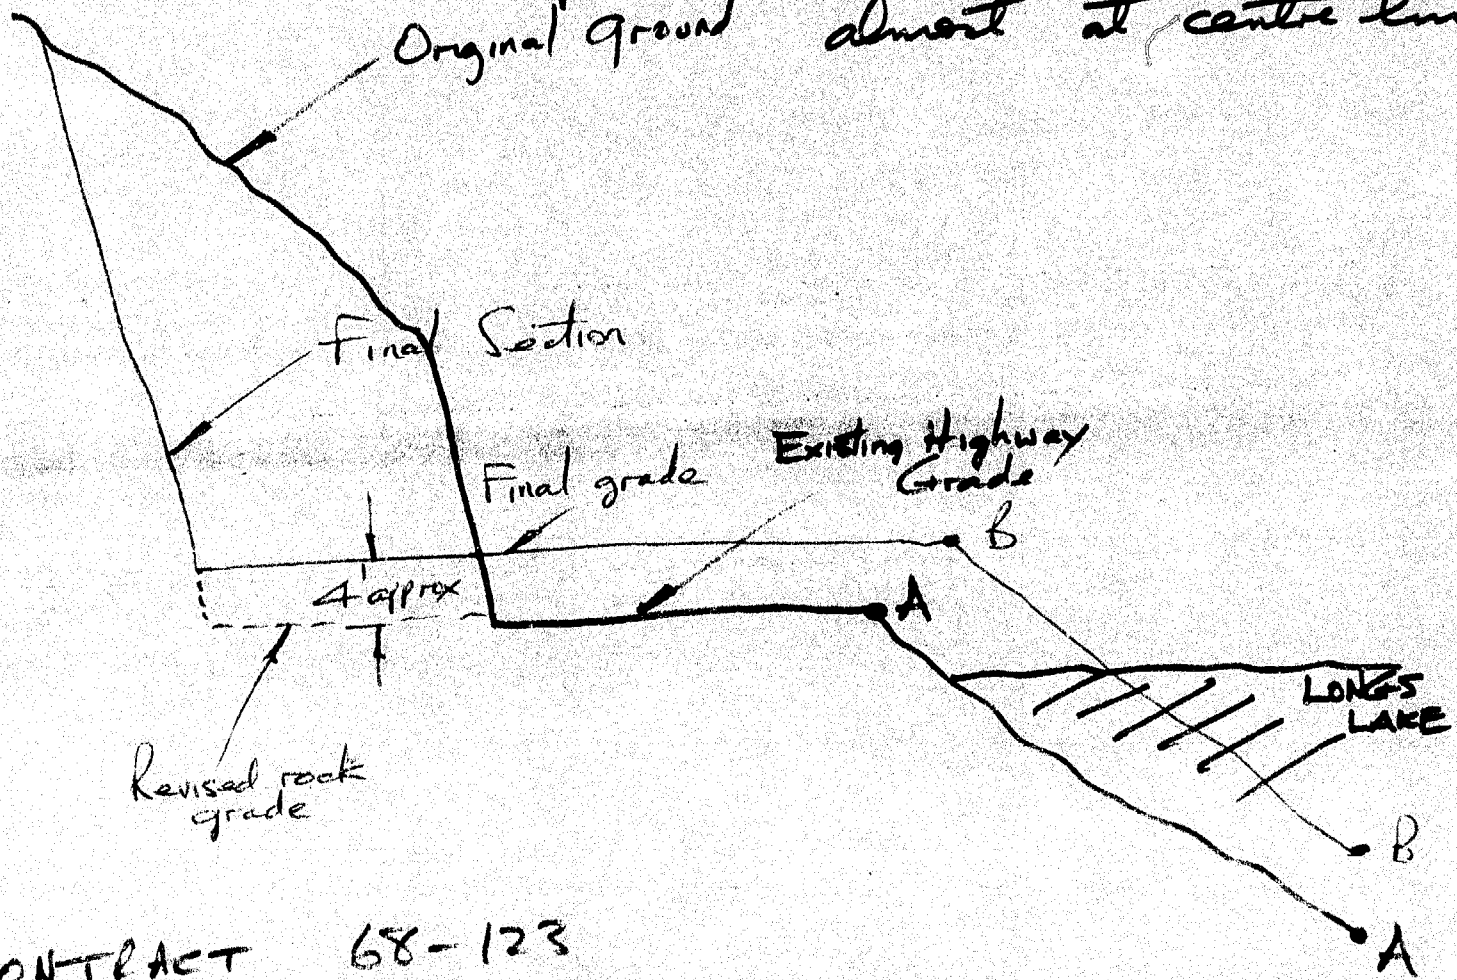 Original ground almost at centre
Final Section
Final grade
Existing Highway
Grade
B
4' approx
A
LONGS
LAKE
Revised rock
grade
B
A
ONTRACT 68-123